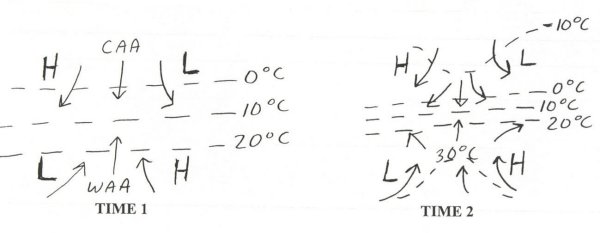 CAA
H L
0°C
10°C
20°C
L WAA H
TIME 1
-10°C
H L
0°C
10°C
20°C
30°C
L H
TIME 2